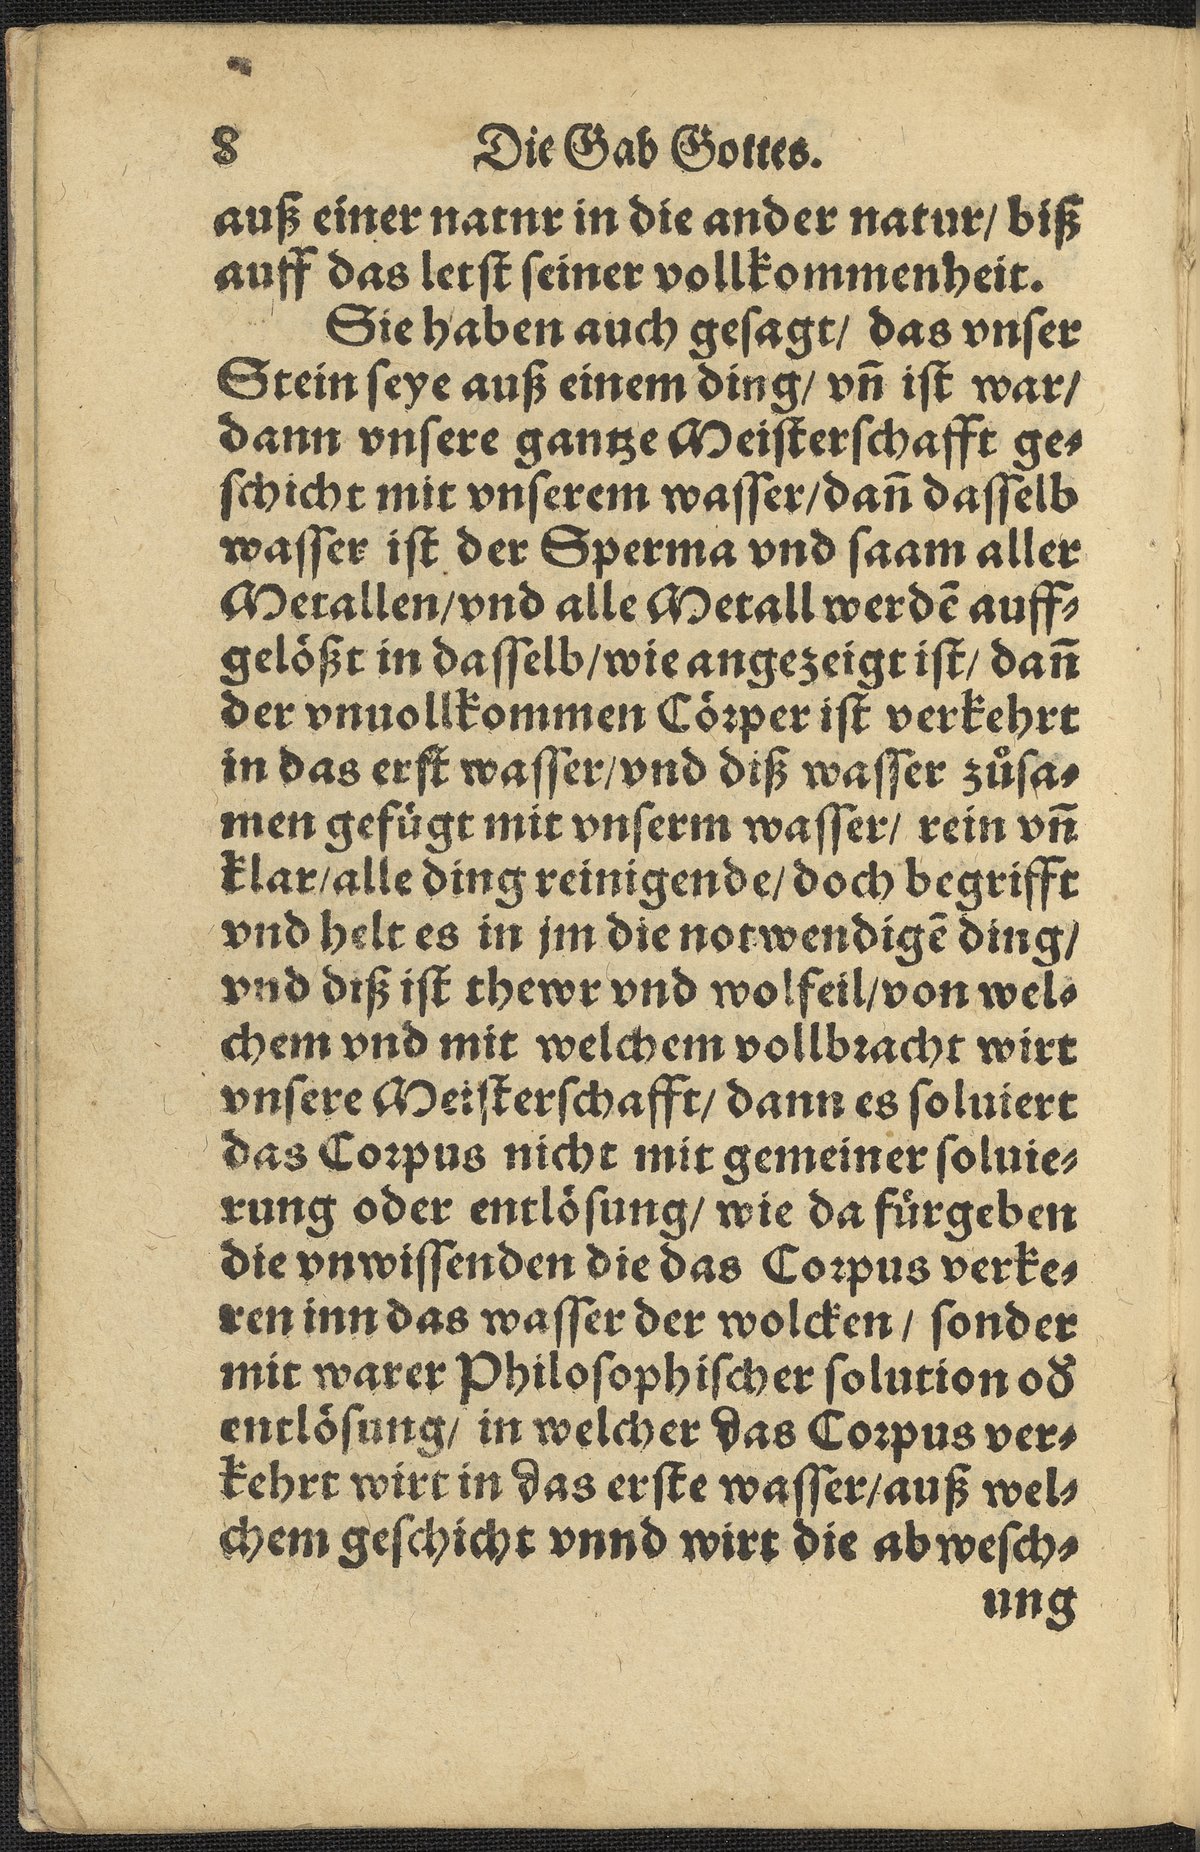 8 Die Gab Gottes.
auß einer natnr in die ander natur/ biß
auff das letst seiner vollkommenheit.
Sie haben auch gesagt/ das vnser
Stein seye auß einem ding/ vñ ist war/
dann vnsere gantze Meisterschafft ge⸗
schicht mit vnserem wasser/dañ dasselb
wasser ist der Sperma vnd saam aller
Metallen/vnd alle Metall werdẽ auff⸗
gelößt in dasselb/wie angezeigt ist/ dañ
der vnuollkommen Cörper ist verkehrt
in das erst wasser/vnd diß wasser zůsa⸗
men gefügt mit vnserm wasser/ rein vñ
klar/alle ding reinigende/doch begrifft
vnd helt es in jm die notwendigẽ ding/
vnd diß ist thewr vnd wolfeil/von wel⸗
chem vnd mit welchem vollbracht wirt
vnsere Meisterschafft/ dann es soluiert
das Corpus nicht mit gemeiner soluie⸗
rung oder entlösung/ wie da fürgeben
die vnwissenden die das Corpus verke⸗
ren inn das wasser der wolcken/ sonder
mit warer Philosophischer solution od̕
entlösung/ in welcher das Corpus ver⸗
kehrt wirt in das erste wasser/auß wel⸗
chem geschicht vnnd wirt die abwesch⸗
ung